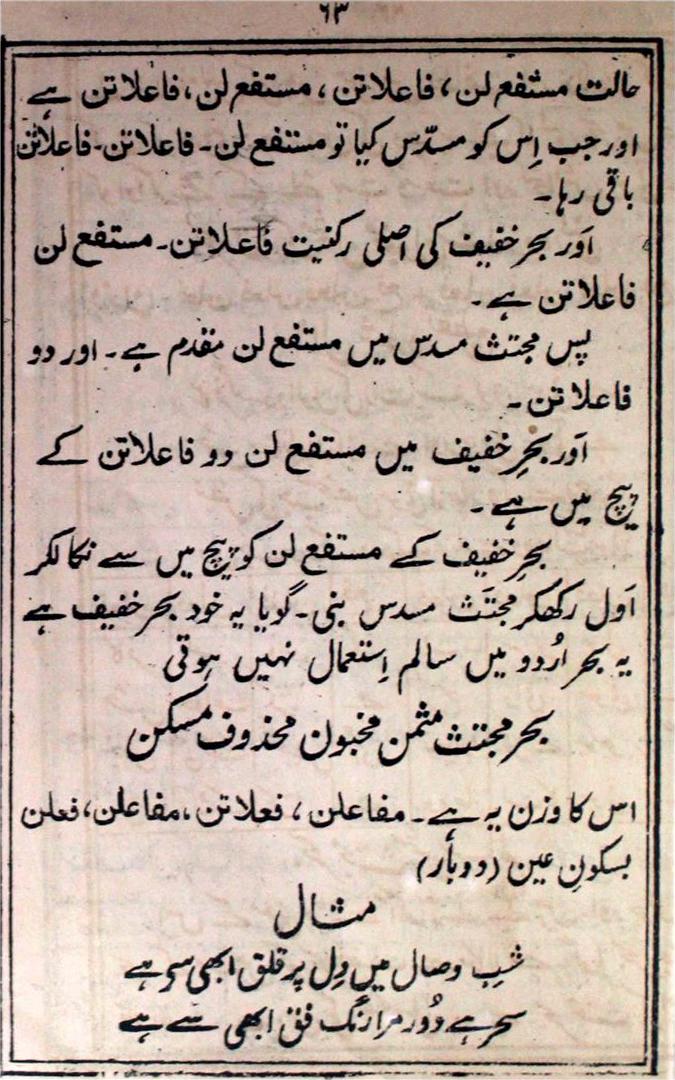 ۶۳
حالت مستفع لن، فاعلاتن، مستفع لن، فاعلاتن ہے
اور جب اِس کو مسدّس کیا تو مستفع لن۔ فاعلاتن۔ فاعلاتن
باقی رہا۔
اَور بحر خفیف کی اصلی رکنیت فاعلاتن۔ مستفع لن
فاعلاتن ہے۔
پس مجتث مسدس میں مستفع لن مقدم ہے۔ اور دو
فاعلاتن۔
اَور بحرِ خفیف میں مستفع لن دو فاعلاتن کے
بیچ میں ہے۔
بحرِ خفیف کے مستفع لن کو بیچ میں سے نکالکر
اَول رکھکر مجتَث مسدس بنی۔ گویا یہ خود بحر خفیف ہے
یہ بحر اُردو میں سالم اِستعمال نہیں ہوتی
بحر مجتث مثمن مخبون محذوف مسکن
اس کا وزن یہ ہے۔ مفاعلن، فعلاتن، مفاعلن، فعلن
بسکونِ عین (دو بار)
مثال
شبِ وصال میں دِل پر قلق ابھی سے ہے
سحر ہے دُور مرا رنگ فق ابھی سے ہے